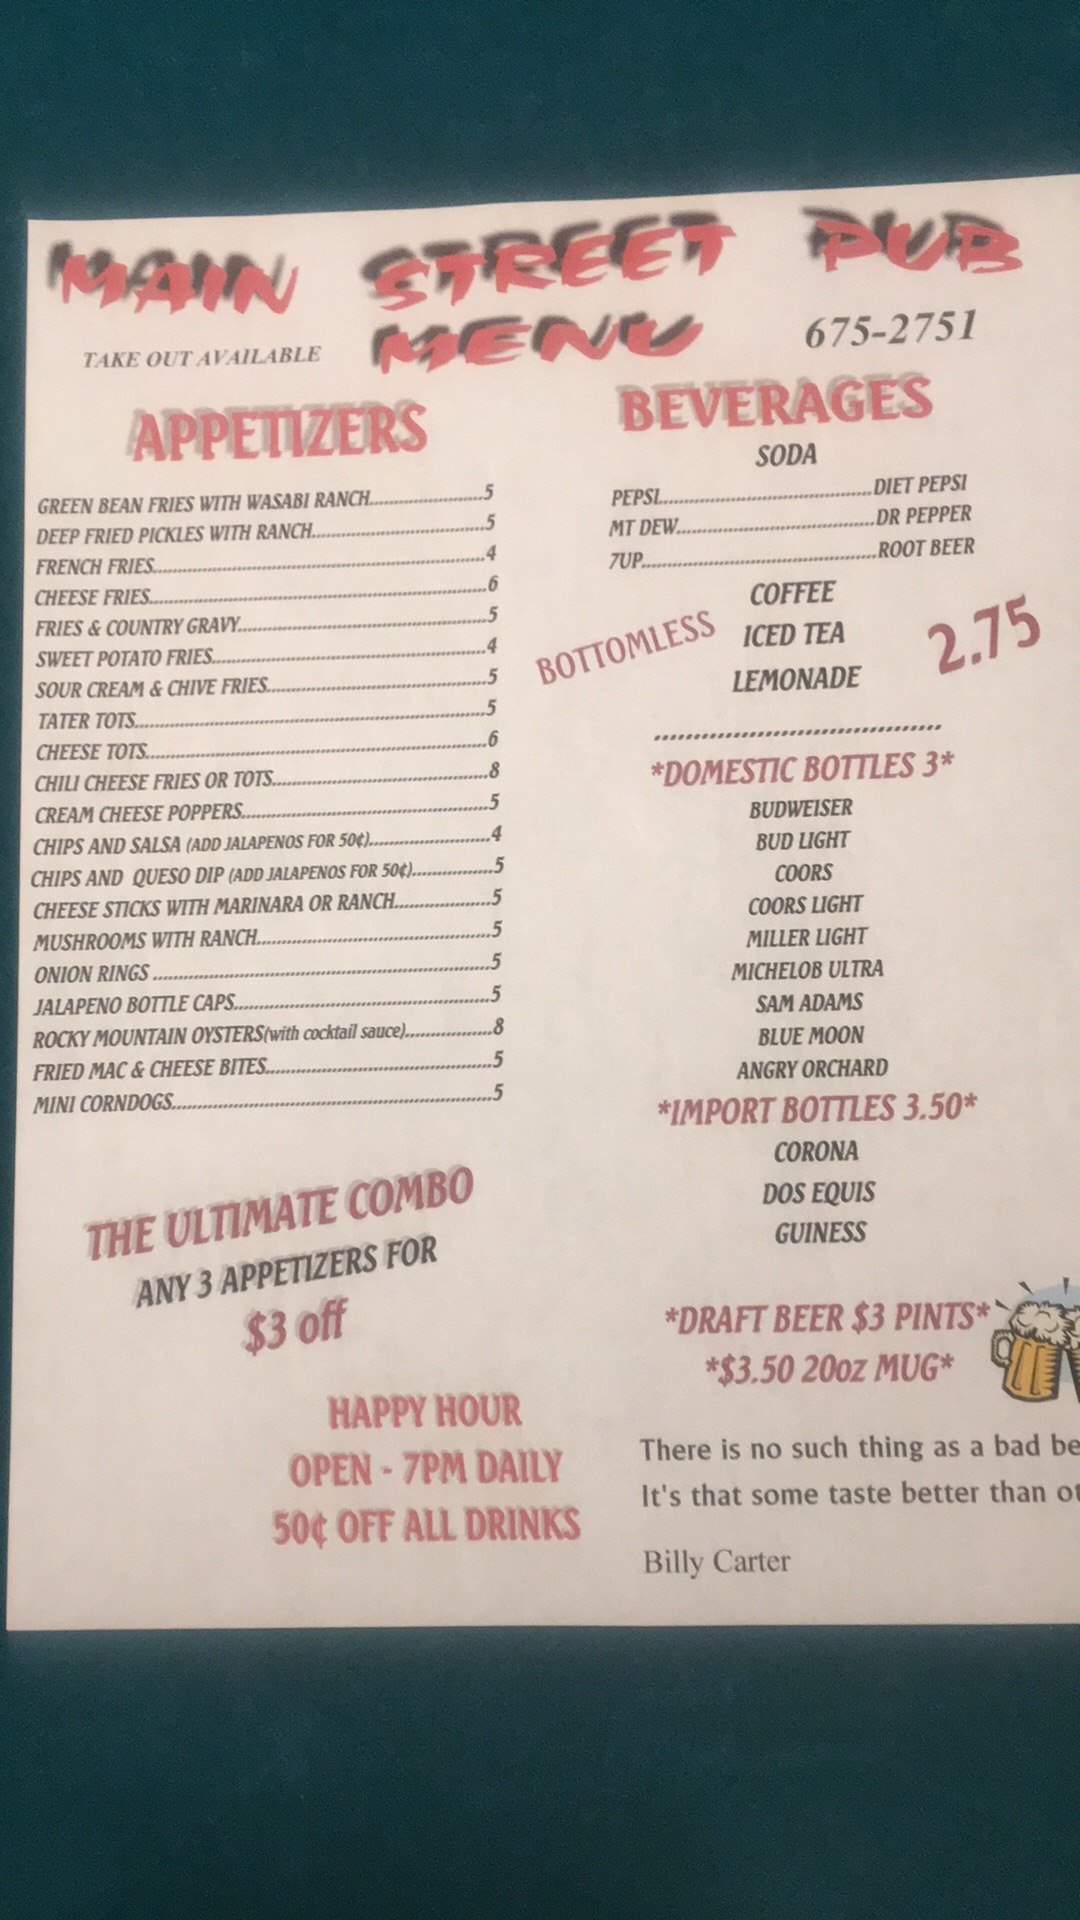 MAIN STREET PUB
MENU
TAKE OUT AVAILABLE
675-2751
APPETIZERS
GREEN BEAN FRIES WITH WASABI RANCH..........5
DEEP FRIED PICKLES WITH RANCH..........5
FRENCH FRIES..........4
CHEESE FRIES..........6
FRIES & COUNTRY GRAVY..........5
SWEET POTATO FRIES..........4
SOUR CREAM & CHIVE FRIES..........5
TATER TOTS..........5
CHEESE TOTS..........6
CHILI CHEESE FRIES OR TOTS..........8
CREAM CHEESE POPPERS..........5
CHIPS AND SALSA (ADD JALAPENOS FOR 50¢)..........4
CHIPS AND QUESO DIP (ADD JALAPENOS FOR 50¢)..........5
CHEESE STICKS WITH MARINARA OR RANCH..........5
MUSHROOMS WITH RANCH..........5
ONION RINGS ..........5
JALAPENO BOTTLE CAPS..........5
ROCKY MOUNTAIN OYSTERS(with cocktail sauce)..........8
FRIED MAC & CHEESE BITES..........5
MINI CORNDOGS..........5
THE ULTIMATE COMBO
ANY 3 APPETIZERS FOR
$3 off
HAPPY HOUR
OPEN - 7PM DAILY
50¢ OFF ALL DRINKS
BEVERAGES
SODA
PEPSI..........DIET PEPSI
MT DEW..........DR PEPPER
7UP..........ROOT BEER
COFFEE
BOTTOMLESS ICED TEA 2.75
LEMONADE
*DOMESTIC BOTTLES 3*
BUDWEISER
BUD LIGHT
COORS
COORS LIGHT
MILLER LIGHT
MICHELOB ULTRA
SAM ADAMS
BLUE MOON
ANGRY ORCHARD
*IMPORT BOTTLES 3.50*
CORONA
DOS EQUIS
GUINESS
*DRAFT BEER $3 PINTS*
*$3.50 20oz MUG*
There is no such thing as a bad be
It's that some taste better than ot
Billy Carter